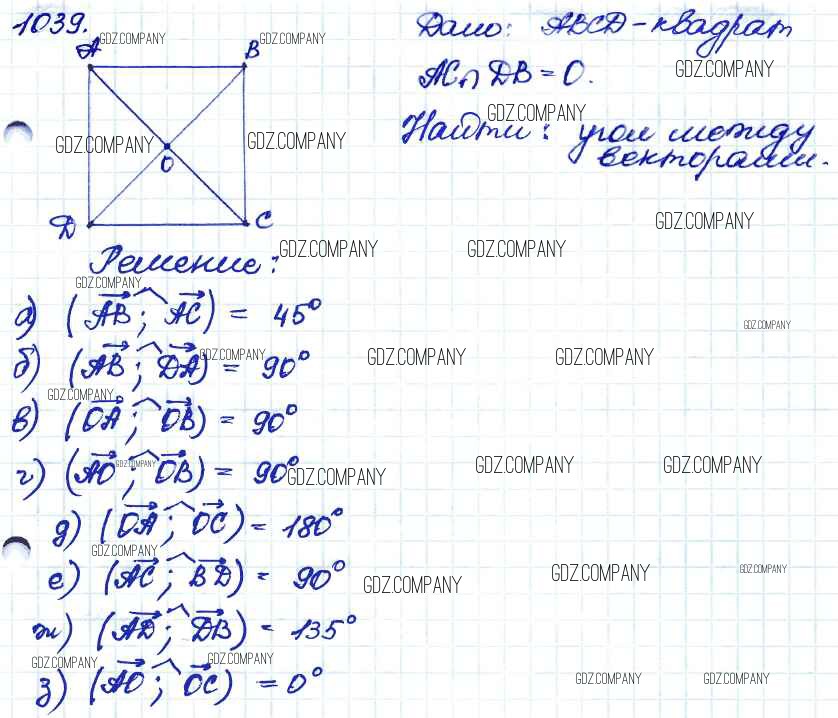 1039.
Дано: ABCD - квадрат
AC ∩ DB = O.
Найти: угол между
векторами.
A
B
O
D
C
Решение:
а) (AB⃗ ; AC⃗) = 45°
б) (AB⃗ ; DA⃗) = 90°
в) (OA⃗ ; OB⃗) = 90°
г) (AO⃗ ; OB⃗) = 90°
д) (OA⃗ ; OC⃗) = 180°
е) (AC⃗ ; BD⃗) = 90°
ж) (AD⃗ ; DB⃗) = 135°
з) (AO⃗ ; OC⃗) = 0°
GDZ.COMPANY GDZ.COMPANY
GDZ.COMPANY
GDZ.COMPANY
GDZ.COMPANY GDZ.COMPANY
GDZ.COMPANY
GDZ.COMPANY GDZ.COMPANY
GDZ.COMPANY
GDZ.COMPANY
GDZ.COMPANY GDZ.COMPANY GDZ.COMPANY
GDZ.COMPANY
GDZ.COMPANY GDZ.COMPANY GDZ.COMPANY GDZ.COMPANY
GDZ.COMPANY
GDZ.COMPANY GDZ.COMPANY GDZ.COMPANY
GDZ.COMPANY GDZ.COMPANY
GDZ.COMPANY GDZ.COMPANY